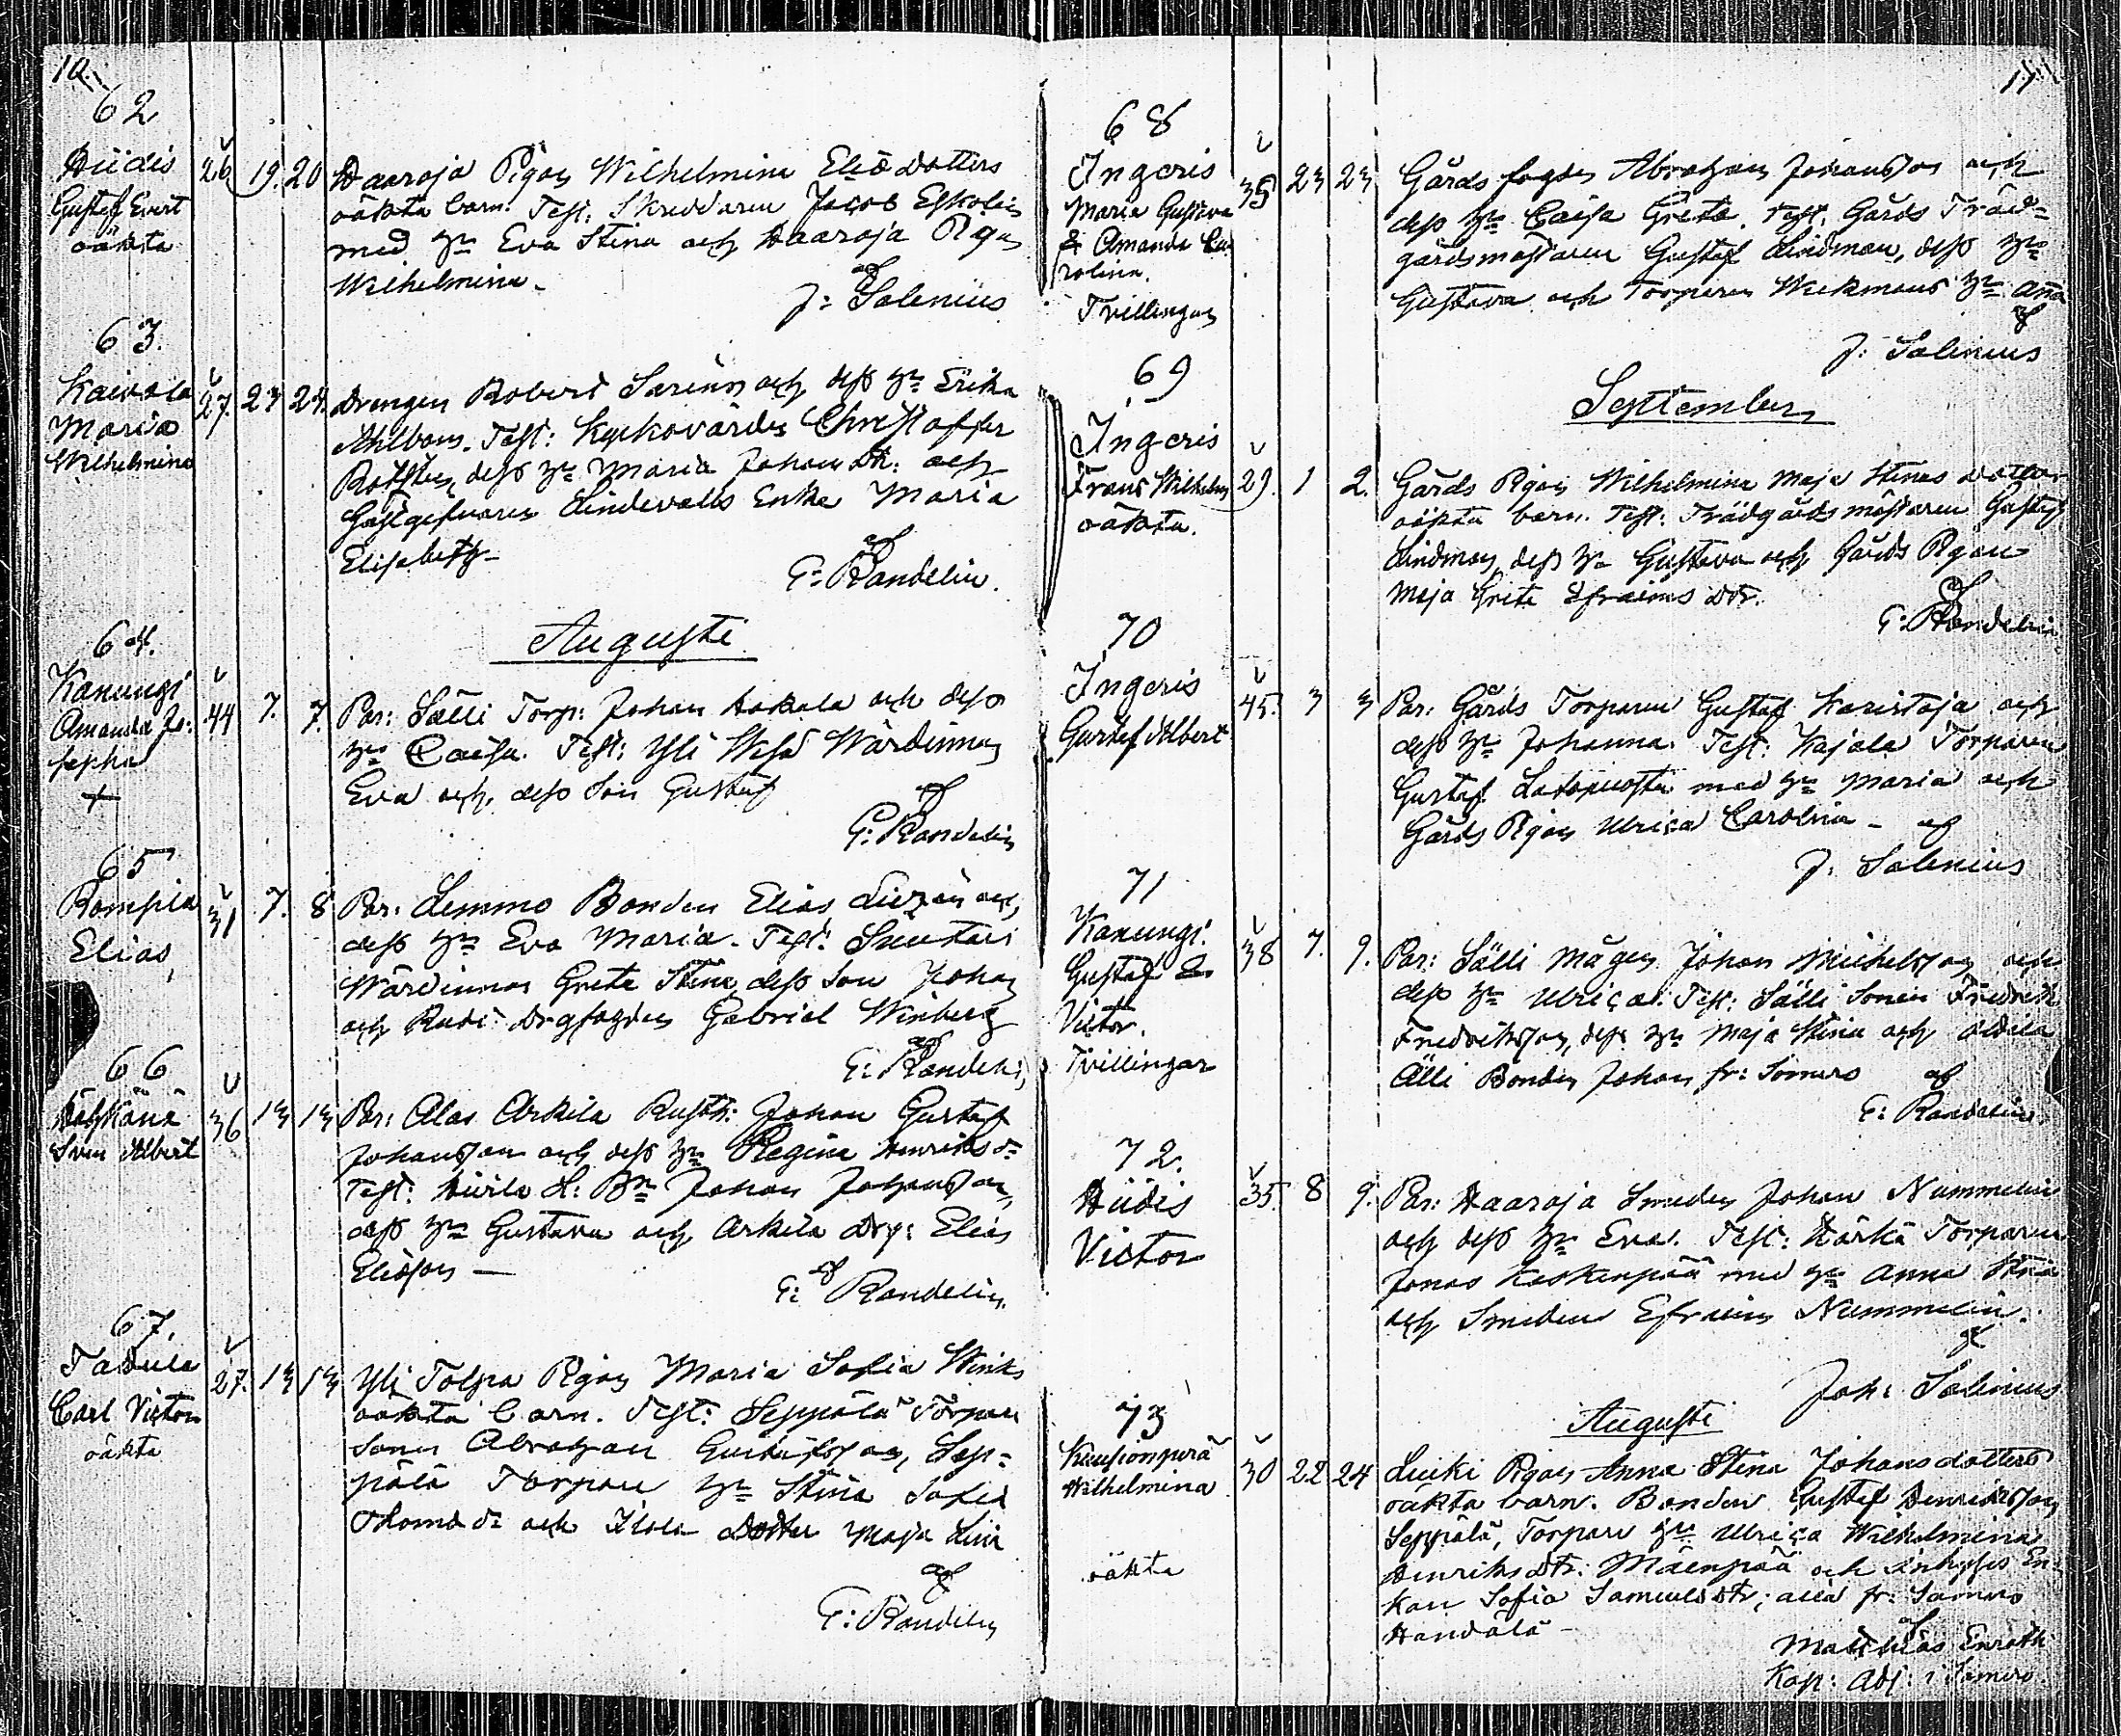 10.
62
Hiidis
Gustef Evert
oäkta
26 19. 20 Haaroja Pigan Wilhelmina Eliæ dotters
oäkta barn. Test: Skreddaren Jacob Eskolin
med hu Eva Stina och Haaroja Pigan
Wilhelmina -
af
J: Salenius
63.
Kaivola
Maria
Wilhelmina
27. 23 24. Drengen Robert Sarenius och dess hu Erika
Ahlbom. Test: Kyrkovärden Christoffer
dess hu Maria Johan dtr: och
Gästgifvaren Lindevalls Enka Maria
Elisabeth -
af
G: Randelin.
Augusti
64.
Kanungi
Amanda Jo:
sepha
+
44 7. 7. Par: Sälli Torp: Johan Hakala och dess
hu Caisa. Test: Yli Wärdinnan
Eva och dess Son Gustaf
af
G: Randelin
65
Rompia
Elias
31 7. 8 Par: Lemmo Bonden Elias och
dess hu Eva Maria. Test:
Wärdinnan Greta Stina, dess Son Johan
och Drgfogden Gabriel Winberg
af
G: Randelin
66
Sven Albert
36 13 13 Par: Alas Arkila Rusth: Johan Gustaf
Johansson och dess hu Regina Henriks dr
Test: Johan Johansson,
dess hu Gustava och Arkila Drg: Elias
Eliasson —
af
G: Randelin.
67.
Carl Victor
oäkta
27. 13 13 Yli Tolpa Pigan Maria Sofia
oäkta barn. Test: Seppälä Torpare
Sonen Abraham Gustafsson, Sep=
pälä Torpare hu Stina Sofia
dr och dotter Maja Lisa
af
G: Randelin
11.
68
Ingeris
Maria Gustava
& Amanda Ca
rolina.
Tvillingar
35 23 23 Gårds fogden Abraham Johansson och
dess hu Caisa Greta. Test. Gårds Träd=
gårdsmästaren Gustaf Lindman, dess hu
Gustava och Torparen Wickmans hu Anna
af
J: Salenius
September
69
Ingeris
Frans Wilhelm
oäkta.
29. 1 2. Gårds Pigan Wilhelmina Maja Stinas dotter
oäkta barn. Test: Trädgårdsmästaren Gustaf
Lindman, dess hu Gustava och Gårds Pigan
Maja Greta Efraims dtr.
af
G: Randelin
70
Ingeris
Gustef Albert
45. 3 3 Par: Gårds Torparen Gustaf Karistoja och
dess hu Johanna. Test: Kajala Torparen
Gustaf med hu Maria och
Gårds Pigan Ulrica Carolina - af
J. Salenius
71
Kanungi.
Gustaf &
Victor.
Tvillingar
38 7. 9. Par: Sälli Mågen Johan Michelsson och
dess hu Ulrica. Test: Sälli Sonen Fredrik
Fredriksson, dess hu Maja Stina och
Älli Bonden Johan fr: Somero
af
G: Randelin.
72.
Hiidis
Victor
35. 8 9. Par: Haaroja Smeden Johan Nummelin
och dess hu Eva. Test: Härkä Torparen
Jonas Koskenpää med hu Anna Stina
och Smeden Efraim Nummelin.
af
Joh: Salenius
Augusti
73
Wilhelmina
oäkta
30 22 24 Luiki Pigan Anna Stina Johans dotters
oäkta barn. Bonden Gustaf Henriksson
Seppälä, Torpare hu Ulrica Wilhelmina
Henriks dtr: Mäenpää och inhyses En=
kan Sofia Samuels dtr; alla fr: Somero
af
Matthias Enroth
Kap: Adj: i Somero.